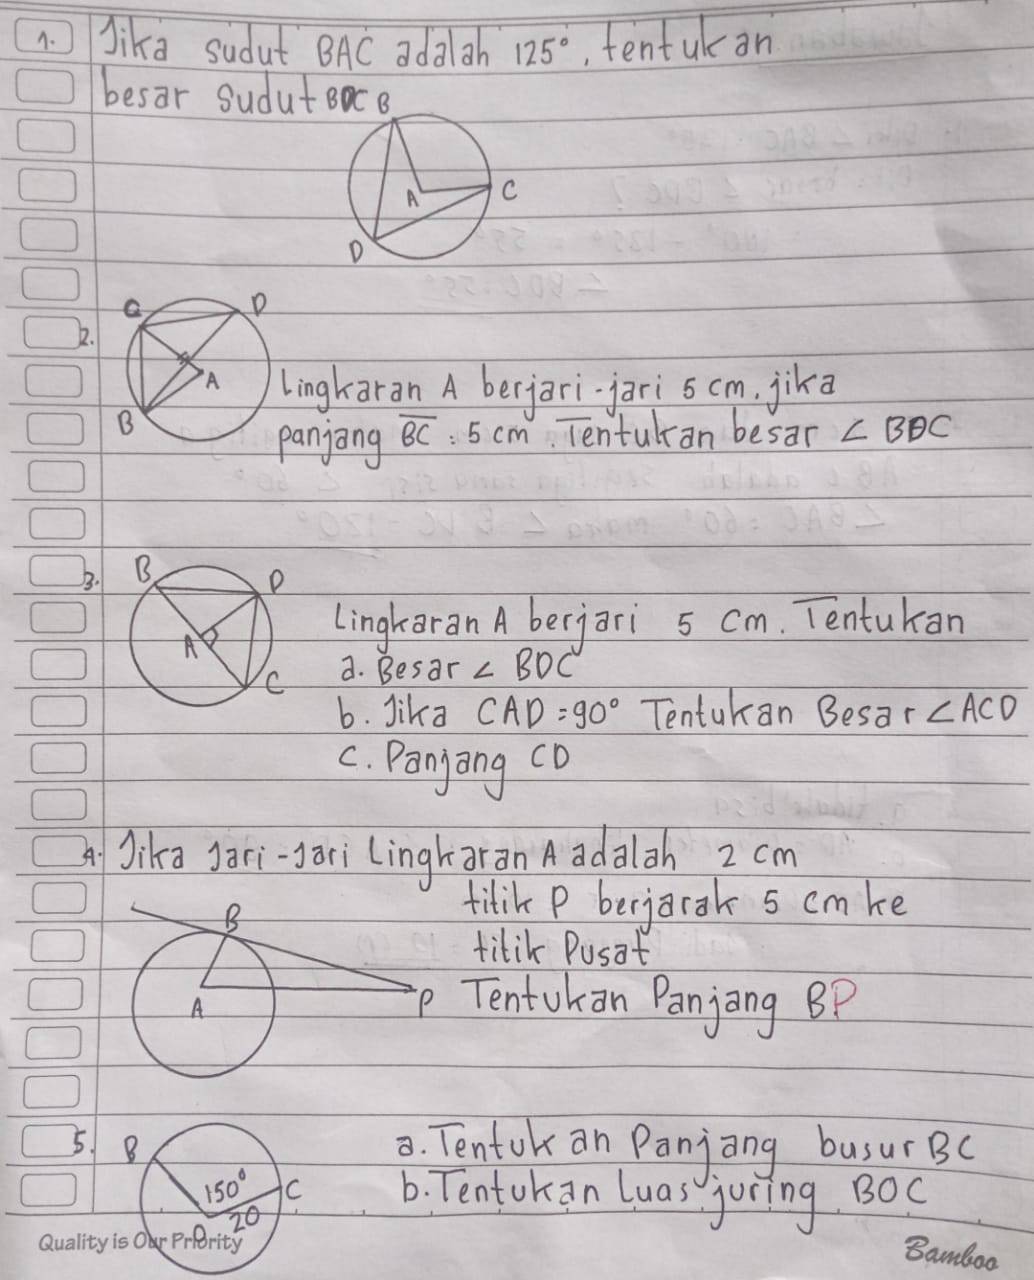 1. Jika sudut BAC adalah 125°, tentukan
besar sudut BDC
B
A
C
D
2.
C
D
A
B
Lingkaran A berjari-jari 5 cm. jika
panjang BC = 5 cm. Tentukan besar ∠ BDC
3.
B
D
A
C
Lingkaran A berjari 5 cm. Tentukan
a. Besar ∠ BDC
b. Jika CAD = 90° Tentukan Besar ∠ACD
c. Panjang CD
4. Jika Jari-Jari Lingkaran A adalah 2 cm
titik P berjarak 5 cm ke
titik Pusat
Tentukan Panjang BP
B
A
P
5.
B
150°
C
20
O
a. Tentukan Panjang busur BC
b. Tentukan Luas juring BOC
Quality is Our Priority
Bamboo